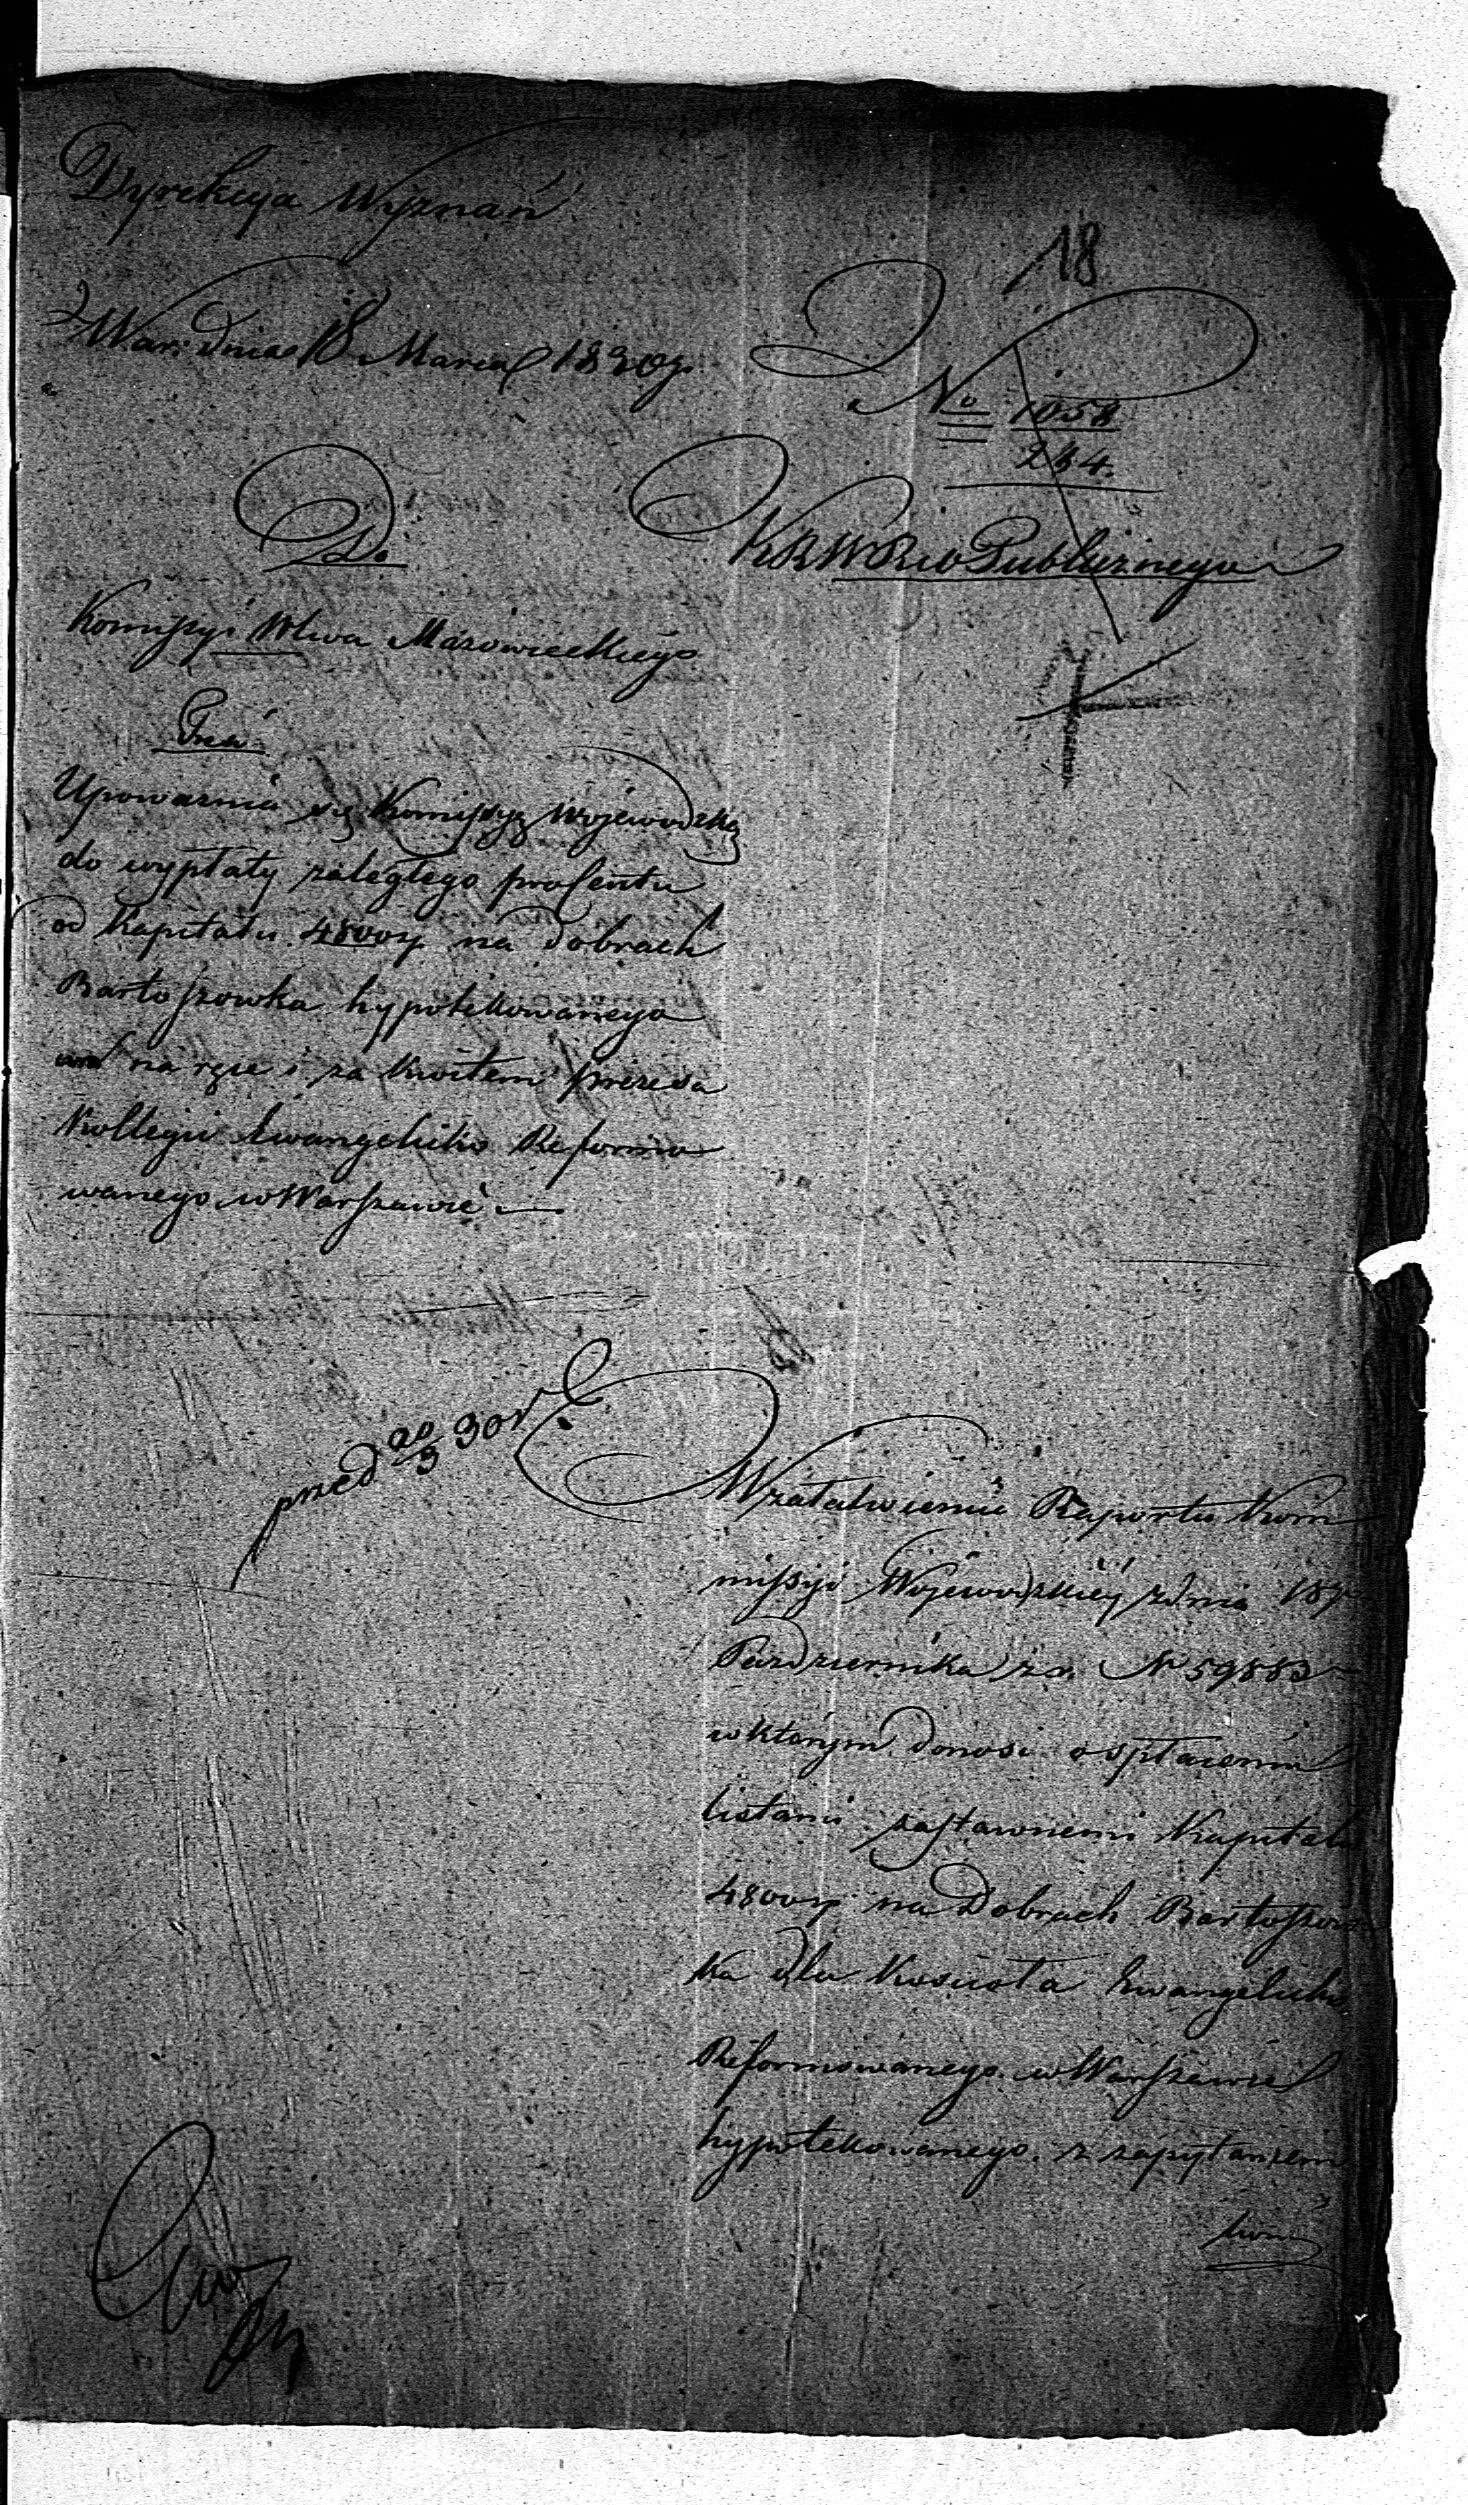 Dyrekcya Wyznań
18
z War: dnia 18 Marca 1830 r.
No 1058
234.
Do
KRWR i O Publicznego
Komissyi Wtwa Mazowieckiego
Treść
Upoważnia się Komissyą Wojewodzką
do wypłaty zaległego procentu
od Kapitału 4800 zł na dobrach
Bartoszowka hypotekowanego
na ręce i za kwitem prezesa
Kollegii Ewangelicko Reformo
wanego w Warszawie
pred 20/3 30 r
W załatwieniu Raportu Kom
missyi Wojewodzkiey z dnia 18
Października z. r. N 59883
w którym donosi o spłaceniu
listami zastawnemi Kapitału
4800 zł na Dobrach Bartoszow
ka dla Kościoła Ewangelicko
Reformowanego w Warszawie
hypotekowanego z zapytaniem